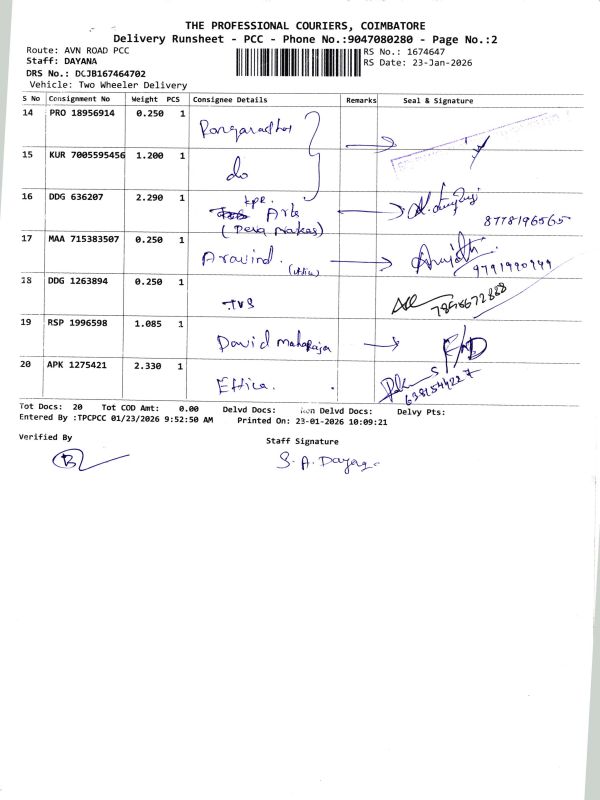 THE PROFESSIONAL COURIERS, COIMBATORE
Delivery Runsheet - PCC - Phone No.:9047080280 - Page No.:2
Route: AVN ROAD PCC
RS No.: 1674647
Staff: DAYANA
RS Date: 23-Jan-2026
DRS No.: DCJB167464702
Vehicle: Two Wheeler Delivery
S No Consignment No Weight PCS Consignee Details Remarks Seal & Signature
14 PRO 18956914 0.250 1
15 KUR 7005595456 1.200 1 do
16 DDG 636207 2.290 1 KPR Arts
8778196565
17 MAA 715383507 0.250 1 Aravind.
9791920249
18 DDG 1263894 0.250 1 TVS
7896672888
19 RSP 1996598 1.085 1 David Maharaja
20 APK 1275421 2.330 1 Effica.
Tot Docs: 20 Tot COD Amt: 0.00 Delvd Docs: Non Delvd Docs: Delvy Pts:
Entered By :TPCPCC 01/23/2026 9:52:50 AM Printed On: 23-01-2026 10:09:21
Verified By
Staff Signature
S. A. Dayana